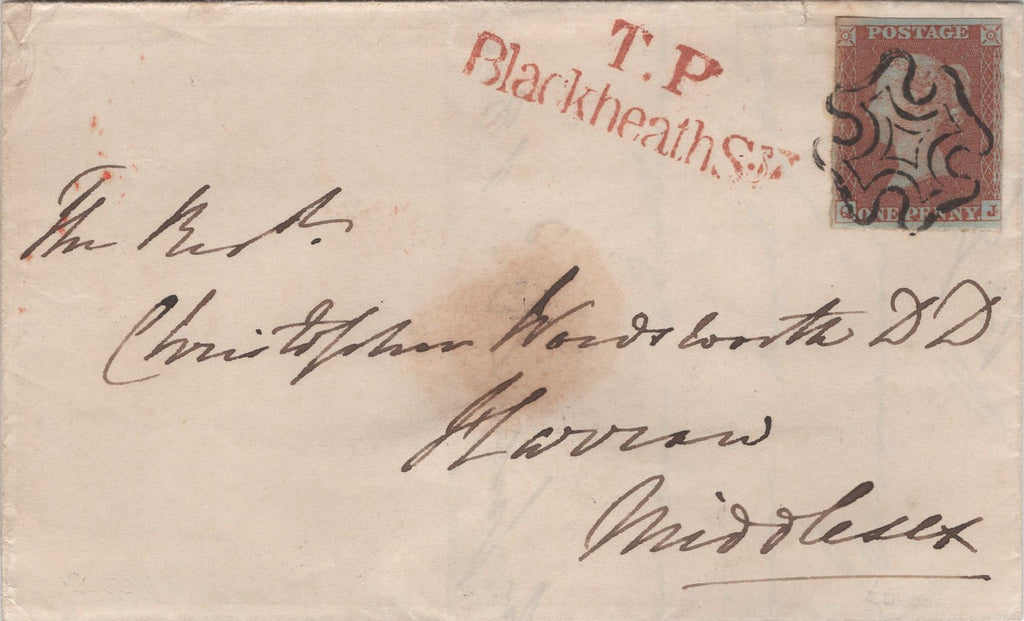 T.P
Blackheath S.O
POSTAGE
ONE PENNY
J
The Revd.
Christopher Wordsworth DD
Harrow
Middlesex